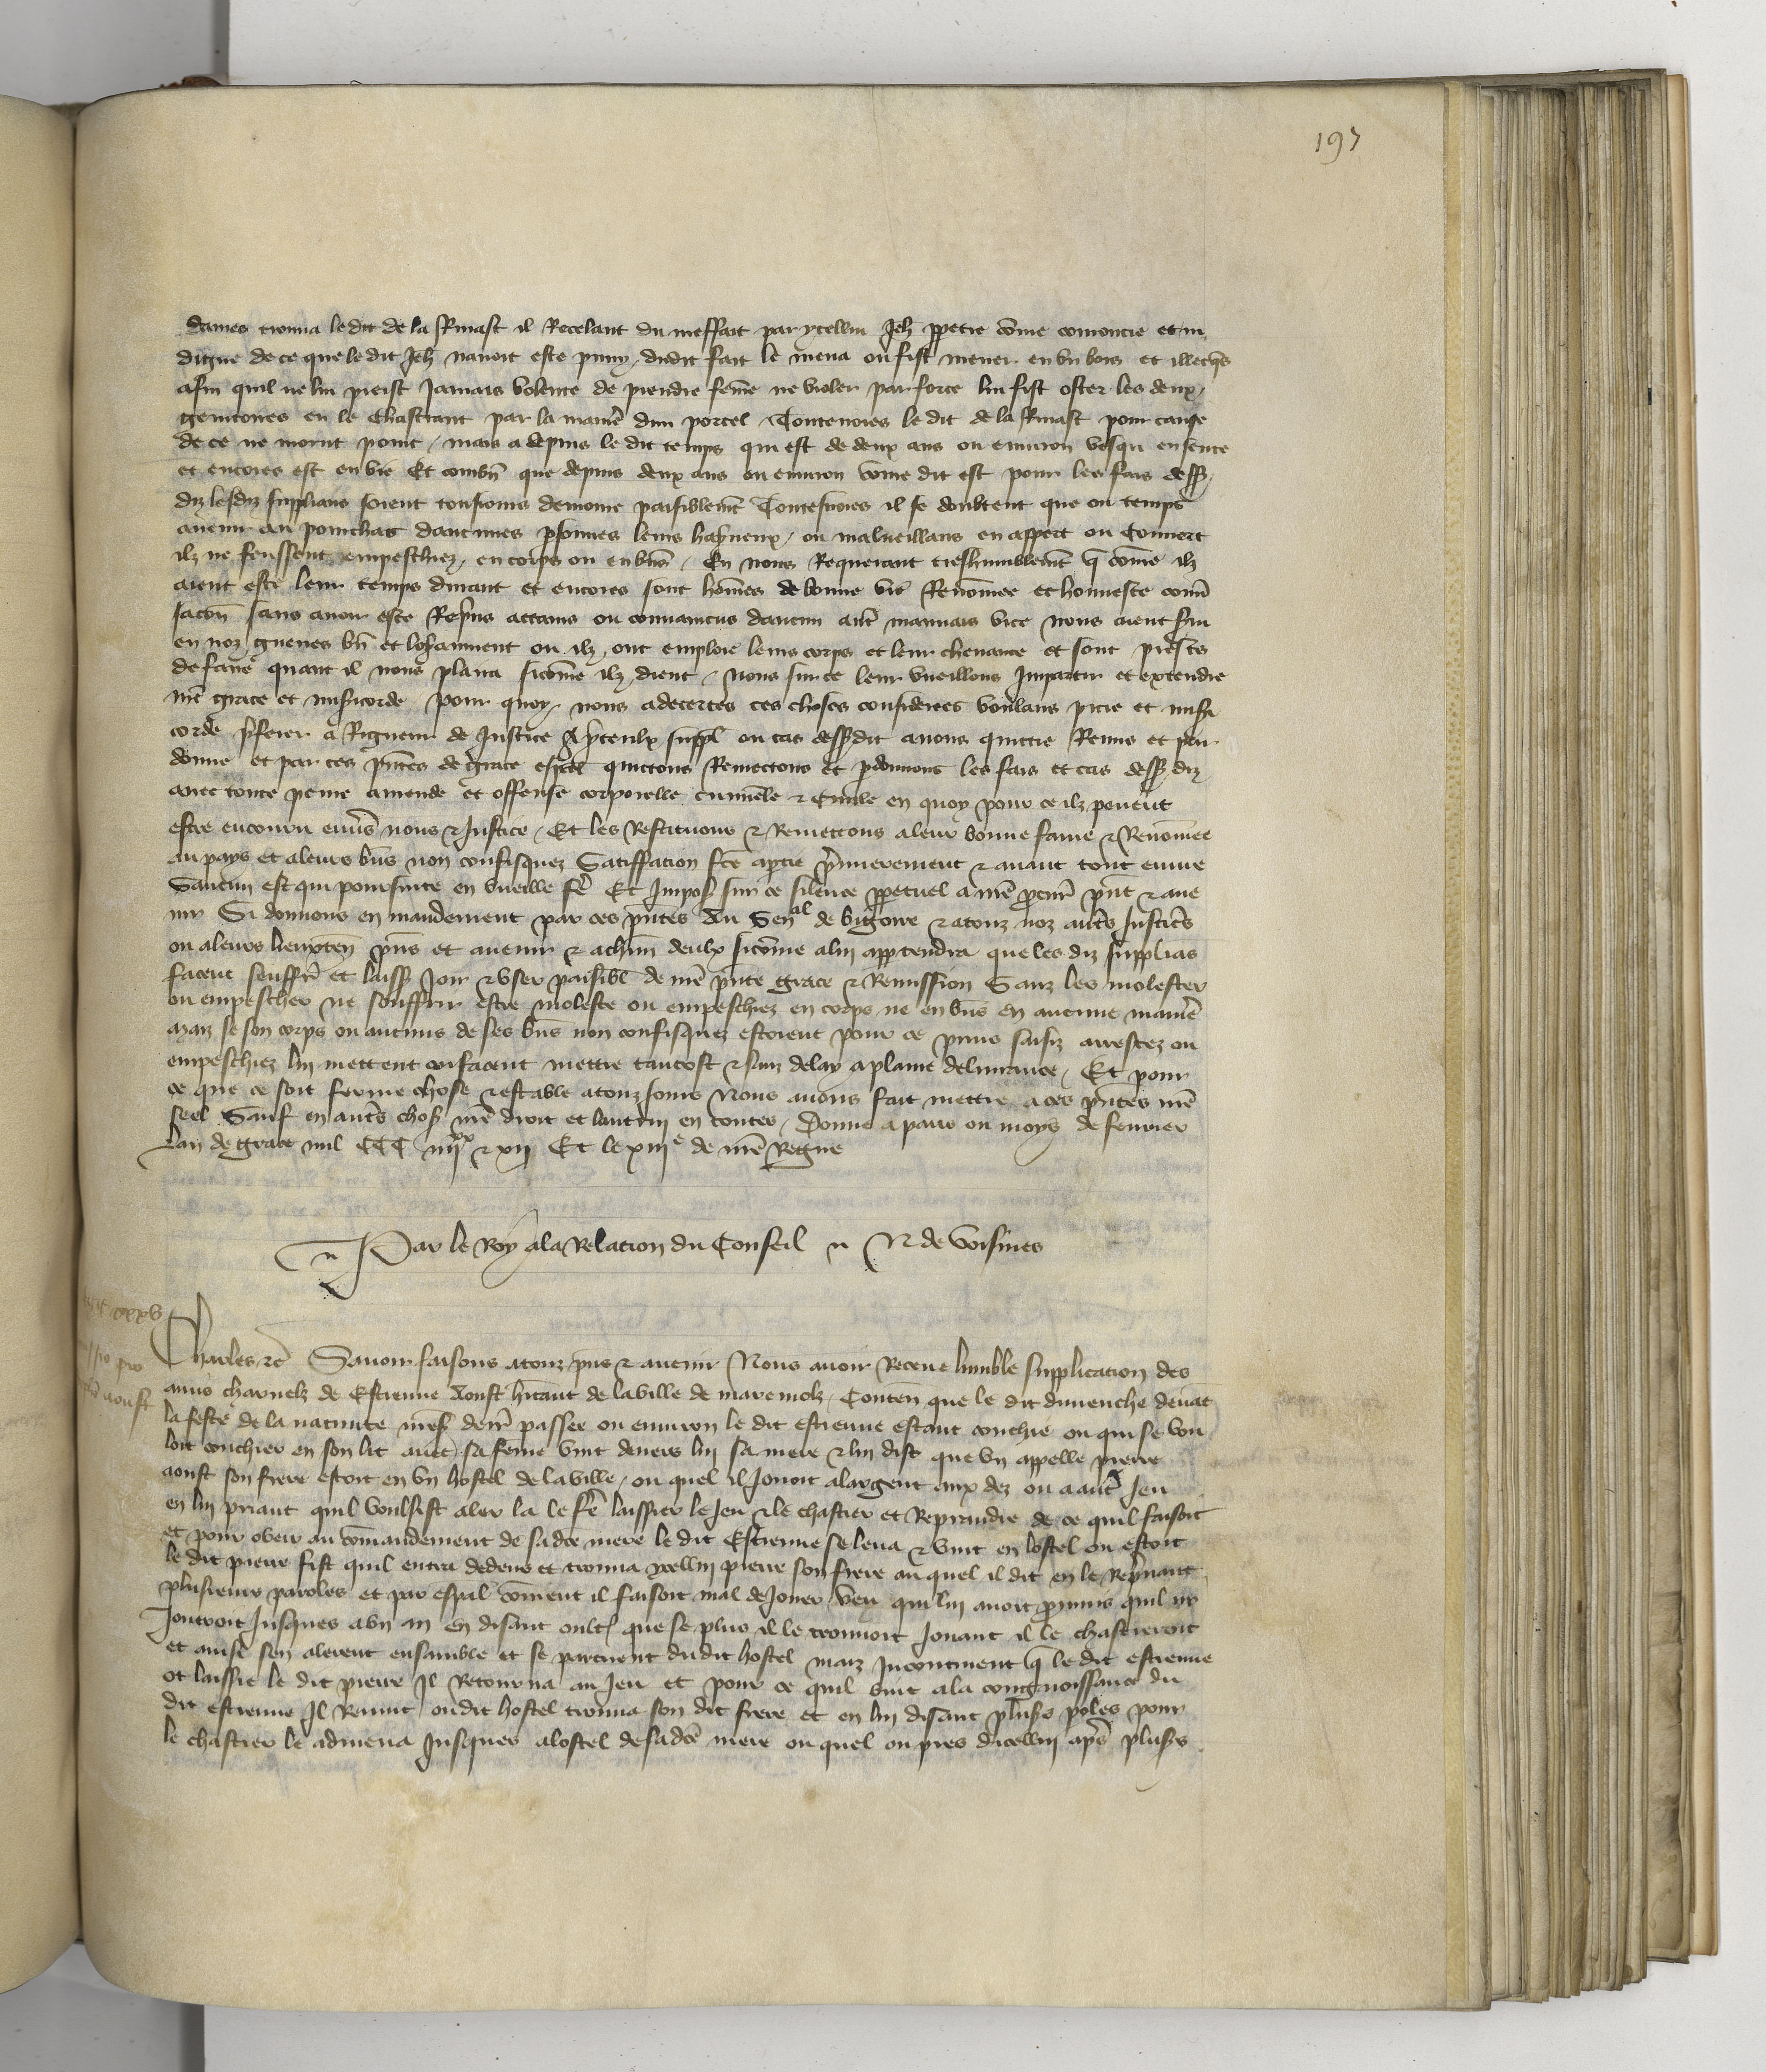 197
dames trouva le dit de la Rmast il Recelant du meffait par ycellui Jeh ppetre come
digne de ce que le dit Jeh navoit este puny dudit fait le mena ou fist mener en un bois et illecqs
afin quil ne lui preist Jamais volente de prendre feme ne violer par force lui fist oster les deux
genitoires en le Chastrant par la manie dun porcel Toutevoies le dit de la Rmast pour cause
de ce ne morut point mais a depuis le dit temps qui est de deux ans ou environ vesqu en sente
et encores est en vie Et combn que depuis deux ans ou environ come dit est pour les fais dess
diz lesdiz supplians soient tousiours demoure paisiblemt Toutesvoies il se doubtent que ou temps
avenir au pourchas daucunes psonnes leurs hayneux ou malveillans en appert ou Couvert
ilz ne feussent empeschiez en corps ou en bns En nous Requerant treshumblemt q come ilz
aient este leur temps durant et encores sont homes de bonne vie Renomee et honneste conv
sacon sans avoir este Reprins attains ou convaincus daucun autre mauvais vice nous aient svi
en noz guerres bn et loyaument ou ilz ont emploie leurs corps et leur chevance et sont prests
de faire quant il nous plaira sicome ilz dient Nous sur ce leur vueillons Impartir et extendre
nre grace et misicorde Pour quoy nous adecertes ces choses considerees voulans pitie et misi
corde pferer a Rigueur de Justice A yceulx suppl ou cas dessdit avons quittie Remis et par
donne et par ces pntes de grace espal quictons Remectons et pdonnons les fais et cas dess diz
avec toute peine amende et offense corporelle crimele & Civile en quoy pour ce ilz peuent
estre encouru envs nous & Justice Et les Restituons & Remettons a leur bonne fame & Renomee
au pays et a leurs bns non confisquez Satiffation fce aptie prmierement & avant tout euvre
Saucun est qui poursuite en vueille fe Et Impos sur ce silence ppetuel a nre pcur pnt & ave
nir Si donnons en mandement par ces pntes Au Senal de bigorre & a touz noz autres Justices
ou a leurs lieuxten pns et avenir & a chun deulx sicome a lui apptendra que les diz supplias
facent seuffre et laiss Joir & user paisibl de nre pnte grace & Remission Sanz les molester
ou empescher ne souffrir estre moleste ou empeschiez en corps ne en bns en aucune manie
maiz se son corps ou aucuns de ses bns non confisquez estoient pour ce prins saisiz arrestez ou
empeschiez lui mettent ou facent mettre tantost & sanz delay a plaine delivrance Et pour
ce que ce soit ferme chose & estable a touz jours Nous avons fait mettre a ces pntes nre
seel Sauf en autres chos nre droit et lautrui en toutes Donne a paris ou moys de fevrier
Lan de grace mil CCC IIIIxx & xII Et le xIIIe de nre Regne
Par le Roy a la Relacion du Conseil N de Voisines
Charles &c Savoir faisons a touz pns & avenir Nous avoir Receue humble supplication des
amis charnelz de Estienne Aoust hitant de la ville de maremolz Conten que le dit dimenche devat
la feste de la nativite nres derr passee ou environ le dit estienne estant couchie ou qui se vou
loit couchier en son lit avec sa feme vint devers lui sa mere & lui dist que un appelle pierre
aoust son frere estoit en un hostel de la ville ou quel il Jouoit a largent aux dez ou a autre Jeu
en lui priant quil voulsist aler la le fe laissier le Jeu & le chastier et Reprandre de ce quil faisoit
et pour obeir au comandement de sa dce mere le dit Estienne se leva & vint en lostel ou estoit
le dit pierre fist quil entra dedens et trouva ycellui pierre son frere au quel il dit en le Repnant
plusieurs paroles et par espal coment il faisoit mal de Jouer veu qui lui avoit pmis quil ne
Joueroit Jusques a un an en disant oult que se plus il le trouvoit Jouant il le chastieroit
et ainsi sen alerent ensamble et se partirent dudit hostel maiz Incontinent q le dit estienne
ot laissie le dit pierre Il Retourna au Jeu et pour ce quil vint a la congnoissance du
dit estienne Il Revint oudit hostel trouva son dit frere et en lui disant pluss poles pour
le chastier le admena Jusques a lostel de sa dce mere ou quel ou pres dicellui aps pluss